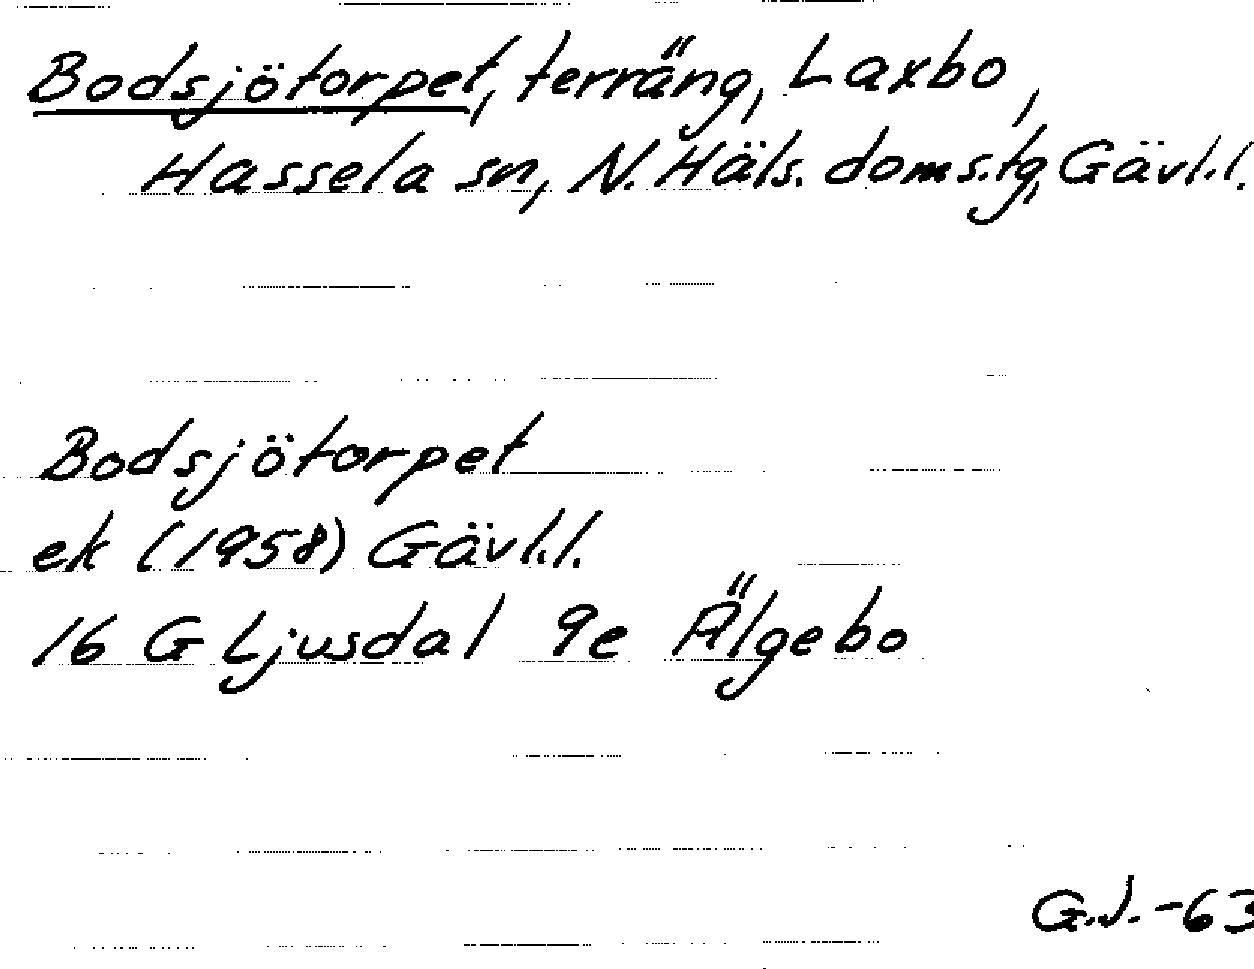 Bodsjötorpet, terräng, Laxbo,
Hassela sn, N. Häls. doms.tg, Gävl.l.
Bodsjötorpet
ek (1958) Gävl.l.
16 G Ljusdal 9e Älgebo
G.J. -63